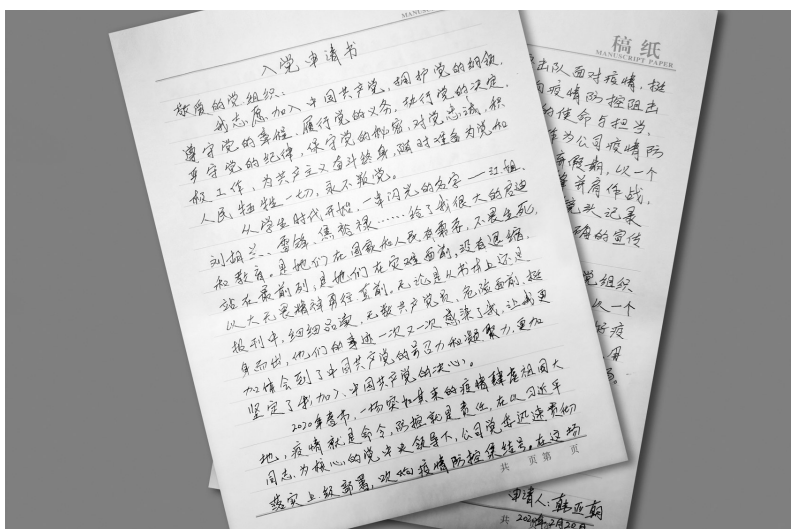 MANUSC
入党申请书
敬爱的党组织：
我志愿加入中国共产党，拥护党的纲领，
遵守党的章程，履行党的义务，执行党的决定，
严守党的纪律，保守党的秘密，对党忠诚，积
极工作，为共产主义奋斗终身，随时准备为党和
人民牺牲一切，永不叛党。
从学生时代开始，一串闪光的名字——江姐、
刘胡兰、雷锋、焦裕禄……给了我很大的启迪
和教育。是他们在国家和人民有需要，不畏生死，
站在最前列，是他们在灾难面前，没有退缩，
以大无畏精神勇往直前。无论是从书本上还是
报刊中，细细品读，无数共产党员，危险面前，挺
身而出，他们的事迹一次又一次感染了我，让我更
加体会到了中国共产党的号召力和凝聚力，更加
坚定了我加入中国共产党的决心。
2020年春节，一场突如其来的疫情肆虐祖国大
地，疫情就是命令，防控就是责任，在以习近平
同志为核心的党中央领导下，公司党委迅速贯彻
落实上级部署，吹响疫情防控集结号。在这场
共 页 第 页
稿纸
MANUSCRIPT PAPER
击队面对疫情，挺
疫情防控阻击
的使命与担当。
为公司疫情防
假期，以一个
并肩作战，
镜头记录
确的宣传
党组织
从一个
疫
用
申请人：韩亚朝
共 2020年2月20日